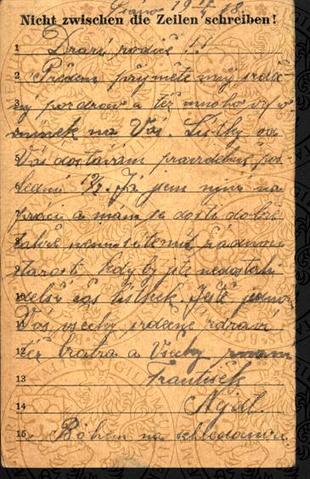 Psáno 19 4/7 18.
Nicht zwischen die Zeilen schreiben!
1 Drazí rodiče!!
2 Předem přijměte můj srdeč
ný pozdrav a též mnoho vzpo
mínek na Vás. Lístky od
Vás dostávám pravidelně po
slední 12/2. Já jsem nyní na
práci a mám se dosti dobře
takže nemusíte míti žádnou
starosti kdyby jste nedostali
10 delší čas lístek. Ještě jednou
11 Vás všechny srdečně zdraví
12 též bratra a Všechny
13 František
14
15 S Bohem na shledanou.